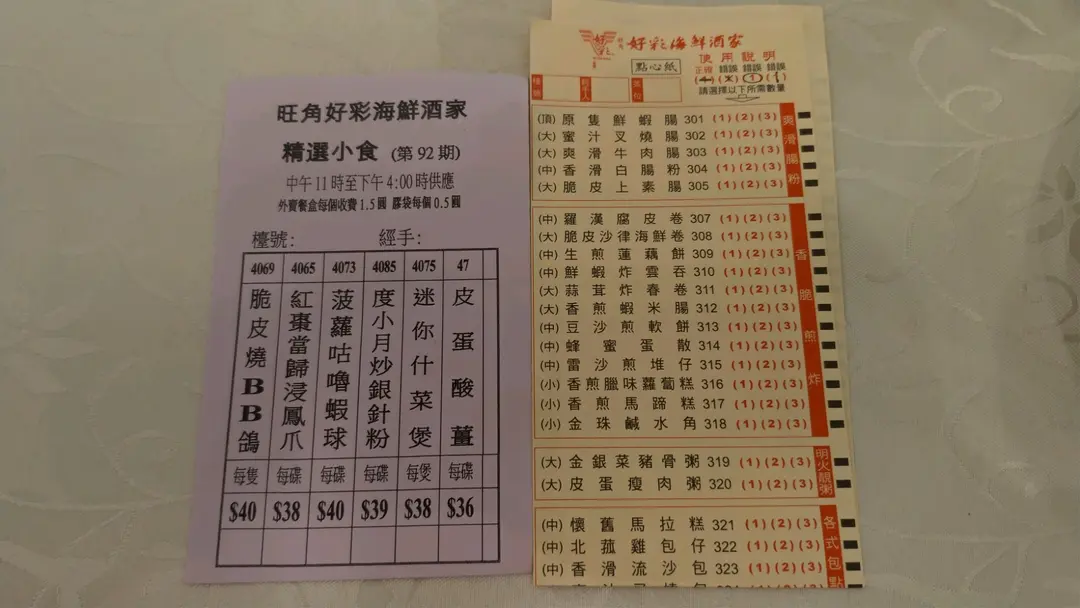 旺角好彩海鮮酒家
精選小食 (第92期)
中午11時至下午4:00時供應
外賣餐盒每個收費1.5圓 膠袋每個0.5圓
檯號: 經手:
4069 4065 4073 4085 4075 47
脆皮燒BB鴿
紅棗當歸浸鳳爪
菠蘿咕嚕蝦球
度小月炒銀針粉
迷你什菜煲
皮蛋酸薑
每隻 每碟 每碟 每碟 每煲 每碟
$40 $38 $40 $39 $38 $36
好彩海鮮酒家
點心紙
使用說明
正確 錯誤 錯誤 錯誤
請選擇以下所需數量
爽滑腸粉
(頂) 原隻鮮蝦腸 301 (1) (2) (3)
(大) 蜜汁叉燒腸 302 (1) (2) (3)
(大) 爽滑牛肉腸 303 (1) (2) (3)
(中) 香滑白腸粉 304 (1) (2) (3)
(大) 脆皮上素腸 305 (1) (2) (3)
香脆煎炸
(中) 羅漢腐皮卷 307 (1) (2) (3)
(大) 脆皮沙律海鮮卷 308 (1) (2) (3)
(中) 生煎蓮藕餅 309 (1) (2) (3)
(中) 鮮蝦炸雲吞 310 (1) (2) (3)
(大) 蒜茸炸春卷 311 (1) (2) (3)
(大) 香煎蝦米腸 312 (1) (2) (3)
(中) 豆沙煎軟餅 313 (1) (2) (3)
(中) 蜂蜜蛋散 314 (1) (2) (3)
(中) 雷沙煎堆仔 315 (1) (2) (3)
(小) 香煎臘味蘿蔔糕 316 (1) (2) (3)
(小) 香煎馬蹄糕 317 (1) (2) (3)
(小) 金珠鹹水角 318 (1) (2) (3)
明火靚粥
(大) 金銀菜豬骨粥 319 (1) (2) (3)
(大) 皮蛋瘦肉粥 320 (1) (2) (3)
各式包點
(中) 懷舊馬拉糕 321 (1) (2) (3)
(中) 北菰雞包仔 322 (1) (2) (3)
(中) 香滑流沙包 323 (1) (2) (3)